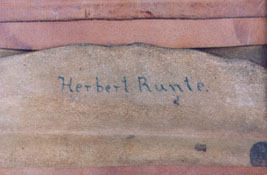 Herbert Runte.